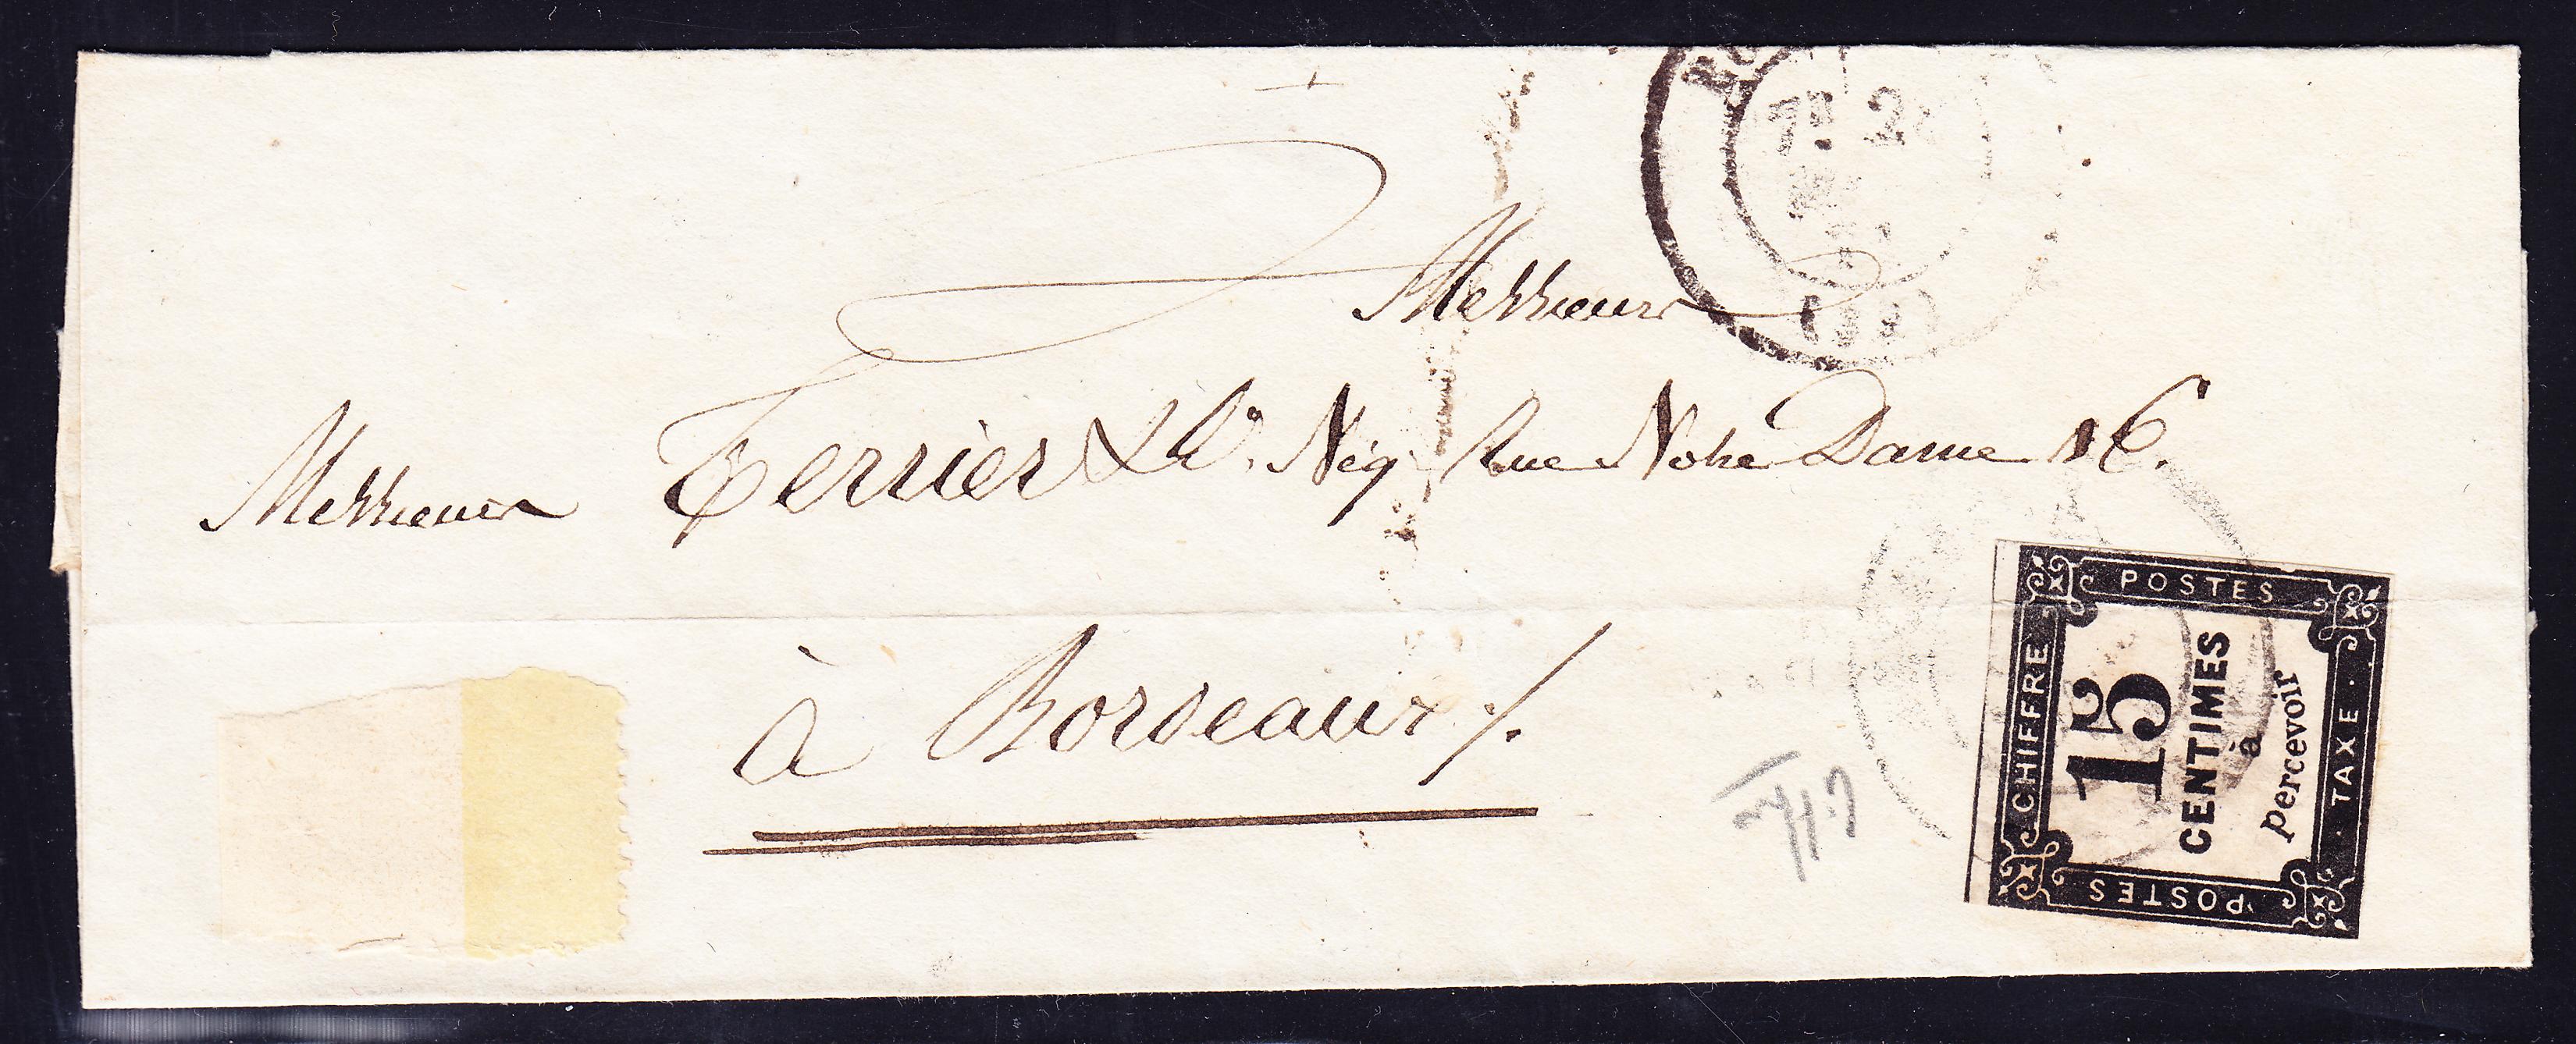 Messieurs
Messieurs Terrier & Cº. Nég. Rue Notre Dame 16.
à Bordeaux ./.
POSTES
CHIFFRE
15
CENTIMES
à
percevoir
TAXE
POSTES